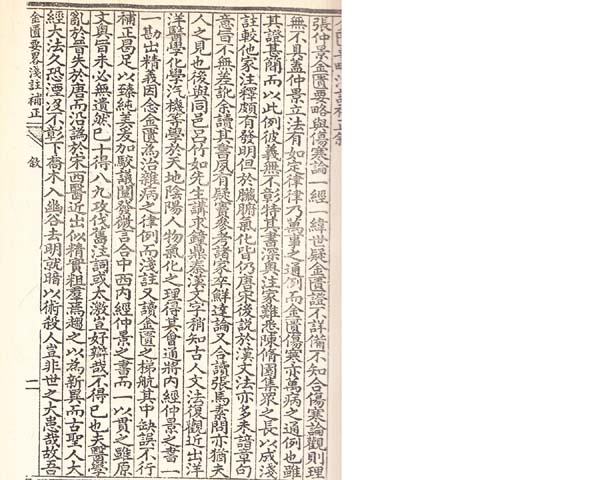 張仲景金匱要略與傷寒論一經一緯世疑金匱證不詳備不知合傷寒論觀則理
無不具蓋仲景立法有如定律律乃萬事之通例而金匱傷寒亦萬病之通例也雖
其證甚簡而以此例彼義無不彰特其書深奧注家難悉陳脩園集衆之長以成淺
註較他家注釋頗有發明但於臟腑氣化皆仍唐宋後說於漢文法亦多未諳章句
意旨不無差訛余讀其書夙有疑竇參考諸家卒鮮達論又合讀張馬素問亦猶夫
人之見也後與同邑呂竹如先生講求鐘鼎秦漢文字稍知古人文法復觀近出洋
洋醫學化學汽機等學於天地陰陽人物氣化之理得其會通將內經仲景之書一
一勘出精義因念金匱為治雜病之律例而淺註又讀金匱之梯航其中缺誤不行
補正曷足以臻純美爰加駮議闡發微言合中西內經仲景之書而一以貫之雖原
文奧旨未必無遺然已十得八九攻伐舊注詞或太激豈好辯哉不得已也夫醫學
亂於晉失於唐而沿譌於宋西醫近出似精實粗羣焉趨之以為新異而古聖人大
經大法久恐湮沒不彰下喬木入幽谷去明就暗以術殺人豈非世之大患哉故吾
金匱要畧淺註補正 敘